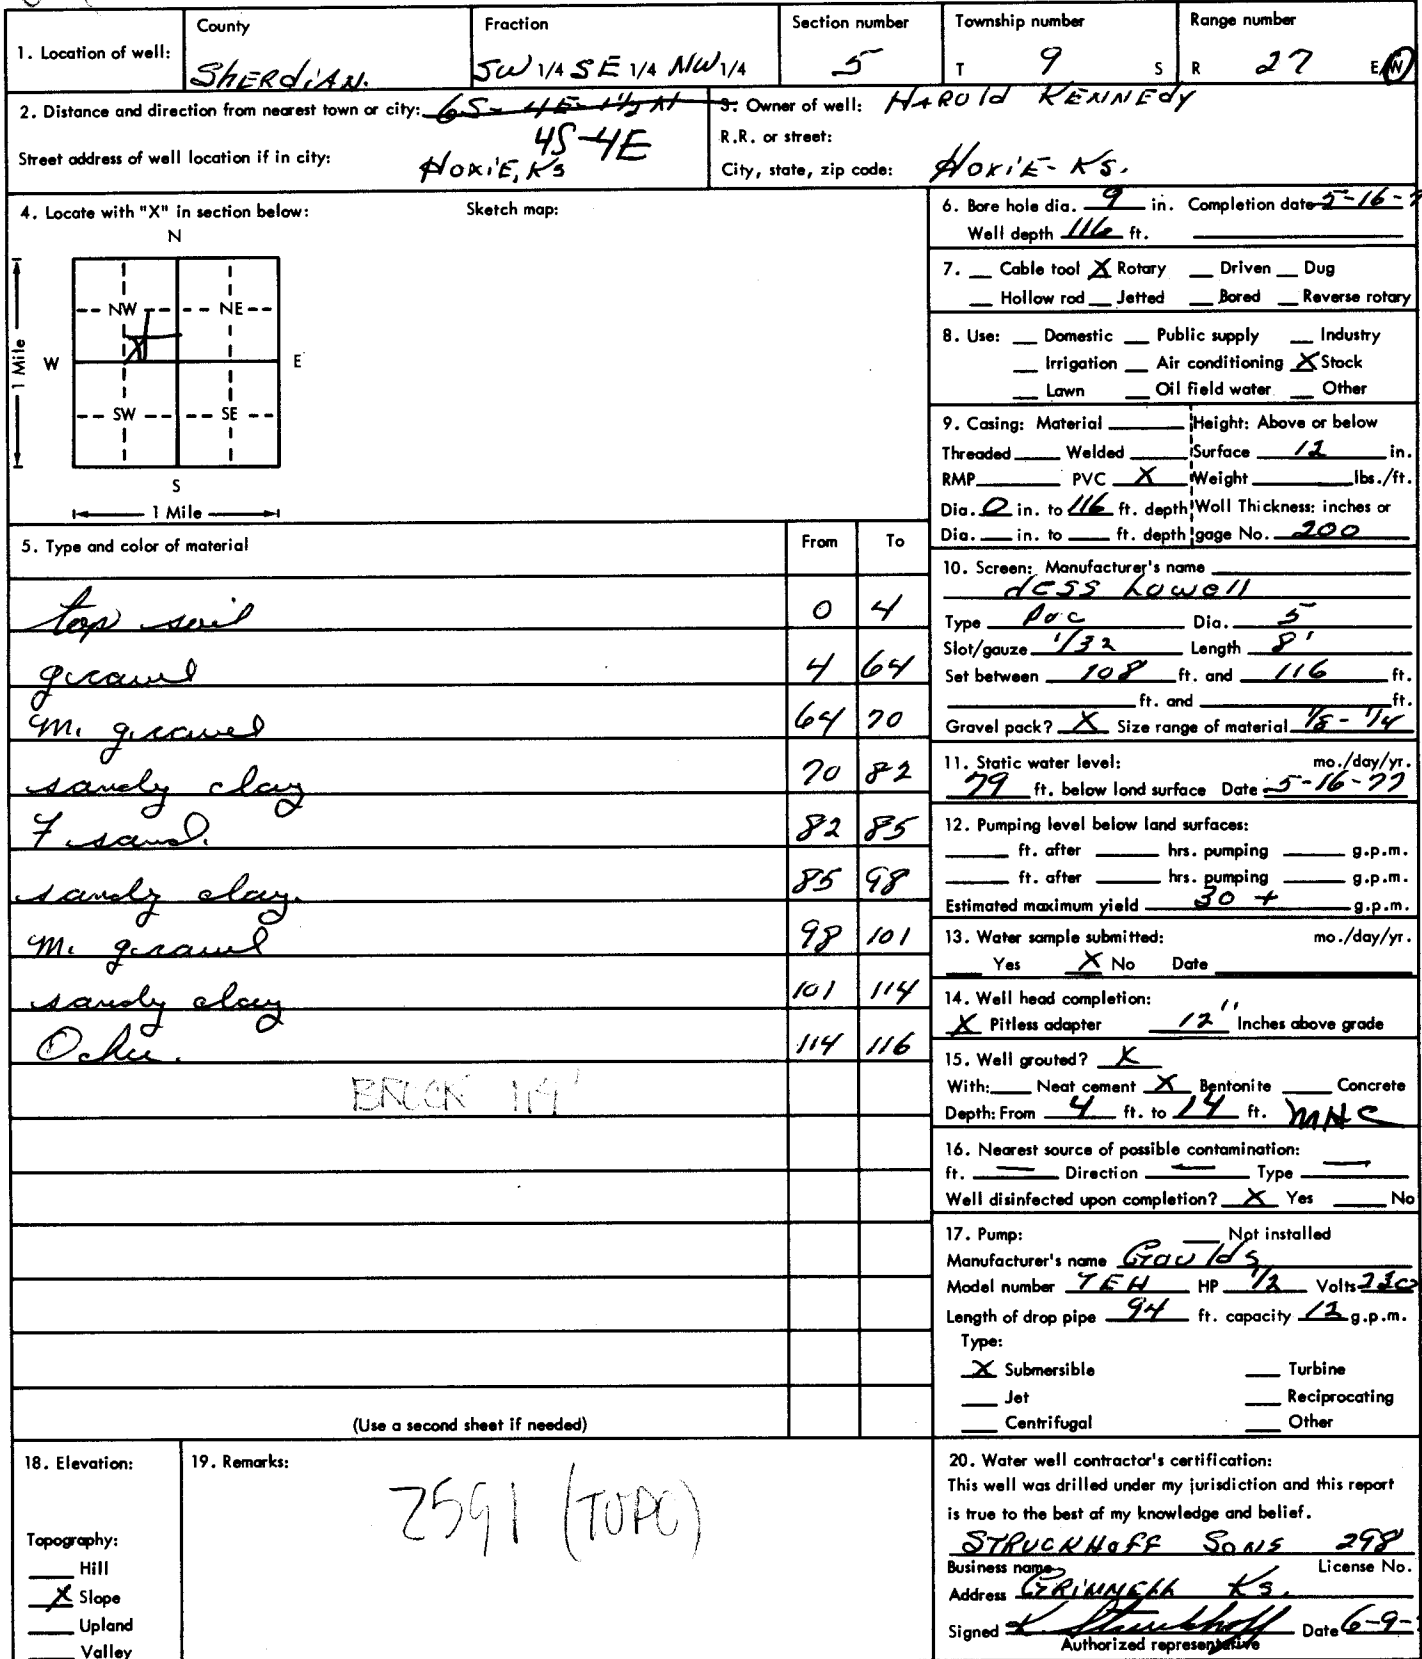 County Fraction Section number Township number Range number
1. Location of well: SHERdiAN. SW 1/4 SE 1/4 NW 1/4 5 T 9 S R 27 E W
2. Distance and direction from nearest town or city: 6S - 4E - 1½ N 3. Owner of well: HAROld KENNEDY
4S-4E R.R. or street:
Street address of well location if in city: HOXIE, KS City, state, zip code: HOXIE- KS.
4. Locate with "X" in section below: Sketch map:
N
NW NE
W E
X
SW SE
S
1 Mile
1 Mile
5. Type and color of material From To
top soil 0 4
gravel 4 64
M. gravel 64 70
sandy clay 70 82
F sand. 82 85
sandy clay. 85 98
M. gravel 98 101
sandy clay 101 114
Ochre. 114 116
(Use a second sheet if needed)
6. Bore hole dia. 9 in. Completion date 5-16-7
Well depth 116 ft.
7. Cable tool X Rotary Driven Dug
Hollow rod Jetted Bored Reverse rotary
8. Use: Domestic Public supply Industry
Irrigation Air conditioning X Stock
Lawn Oil field water Other
9. Casing: Material Height: Above or below
Threaded Welded Surface 12 in.
RMP PVC X Weight lbs./ft.
Dia. 0 in. to 116 ft. depth Woll Thickness: inches or
Dia. in. to ft. depth gage No. 200
10. Screen: Manufacturer's name
Jess Lowell
Type PVC Dia. 5
Slot/gauze 1/32 Length 8'
Set between 108 ft. and 116 ft.
ft. and ft.
Gravel pack? X Size range of material 1/8 - 1/4
11. Static water level: mo./day/yr.
79 ft. below lond surface Date 5-16-77
12. Pumping level below land surfaces:
ft. after hrs. pumping g.p.m.
ft. after hrs. pumping g.p.m.
Estimated maximum yield 30 + g.p.m.
13. Water sample submitted: mo./day/yr.
Yes X No Date
14. Well head completion:
X Pitless adapter 12" Inches above grade
15. Well grouted? X
With: Neat cement X Bentonite Concrete
Depth: From 4 ft. to 14 ft. MHC
16. Nearest source of possible contamination:
ft. — Direction — Type —
Well disinfected upon completion? X Yes No
17. Pump: Not installed
Manufacturer's name Goulds
Model number 7EH HP 1/2 Volts 230
Length of drop pipe 94 ft. capacity 12 g.p.m.
Type:
X Submersible Turbine
Jet Reciprocating
Centrifugal Other
18. Elevation: 19. Remarks:
2591 (TOPO)
Topography:
Hill
X Slope
Upland
Valley
20. Water well contractor's certification:
This well was drilled under my jurisdiction and this report
is true to the best of my knowledge and belief.
STRUCKHOFF SONS 298
Business name License No.
Address GRINNELL KS.
Signed K Struckhoff Date 6-9-
Authorized representative